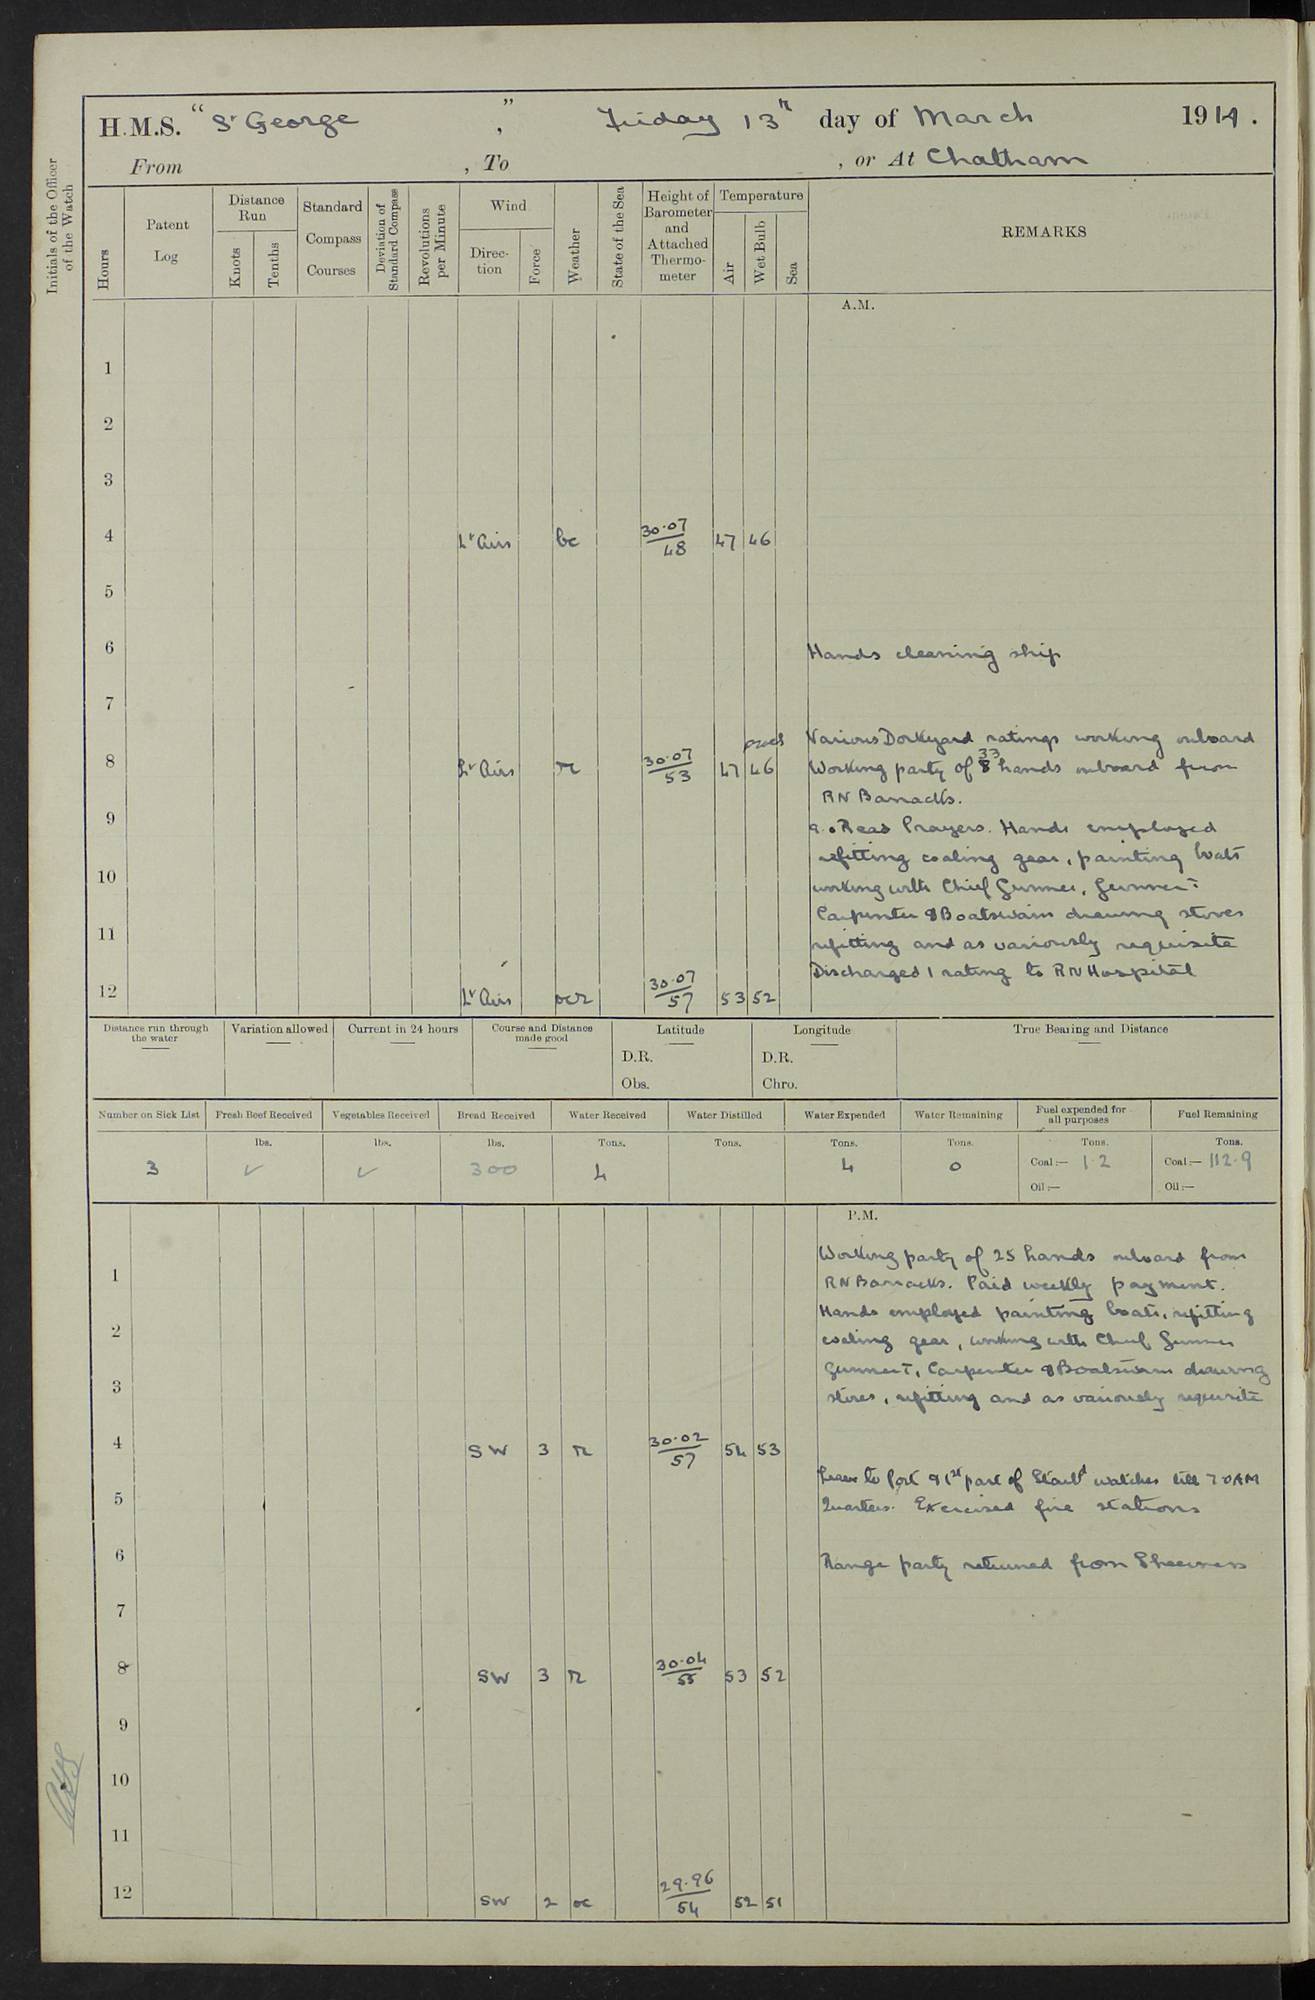 H.M.S. "St George", Friday 13th day of March 1914.
From , To , or At Chatham
Initials of the Officer of the Watch
Hours
Patent Log
Distance Run
Knots
Tenths
Standard Compass Courses
Deviation of Standard Compass
Revolutions per Minute
Wind
Direction
Force
Weather
State of the Sea
Height of Barometer and Attached Thermometer
Temperature
Air
Wet Bulb
Sea
REMARKS
A.M.
1
2
3
4 Lt Airs bc 30.07/48 47 46
5
6 Hands cleaning ship
7
Various Dockyard ratings working onboard
8 Lt Airs r 30.07/53 47 46 Working party of 33 hands onboard from
RN Barracks.
9 9.0 Read Prayers. Hands employed
refitting coaling gear, painting boats
10 working with Chief Gunner, Gunner T
Carpenter & Boatswain drawing stores
11 refitting and as variously requisite
Discharged 1 rating to RN Hospital
12 Lt Airs ocr 30.07/57 53 52
Distance run through the water
Variation allowed
Current in 24 hours
Course and Distance made good
Latitude
D.R.
Obs.
Longitude
D.R.
Chro.
True Bearing and Distance
Number on Sick List
Fresh Beef Received
Vegetables Received
Bread Received
Water Received
Water Distilled
Water Expended
Water Remaining
Fuel expended for all purposes
Fuel Remaining
lbs. lbs. lbs. Tons. Tons. Tons. Tons. Tons. Tons.
3 ✓ ✓ 300 4 4 0 Coal:— 1.2 Coal:— 112.9
Oil:— Oil:—
P.M.
Working party of 25 hands onboard from
1 RN Barracks. Paid weekly payment.
Hands employed painting boats, refitting
2 coaling gear, working with Chief Gunner
Gunner T, Carpenter & Boatswain drawing
3 stores, refitting and as variously requisite
4 SW 3 r 30.02/57 54 53
Leave to Port & 1st part of Starbd watches till 7.0AM
5 Quarters. Exercised fire stations
6 Range party returned from Sheerness
7
8 SW 3 r 30.04/55 53 52
9
10
11
12 SW 2 oc 29.96/54 52 51